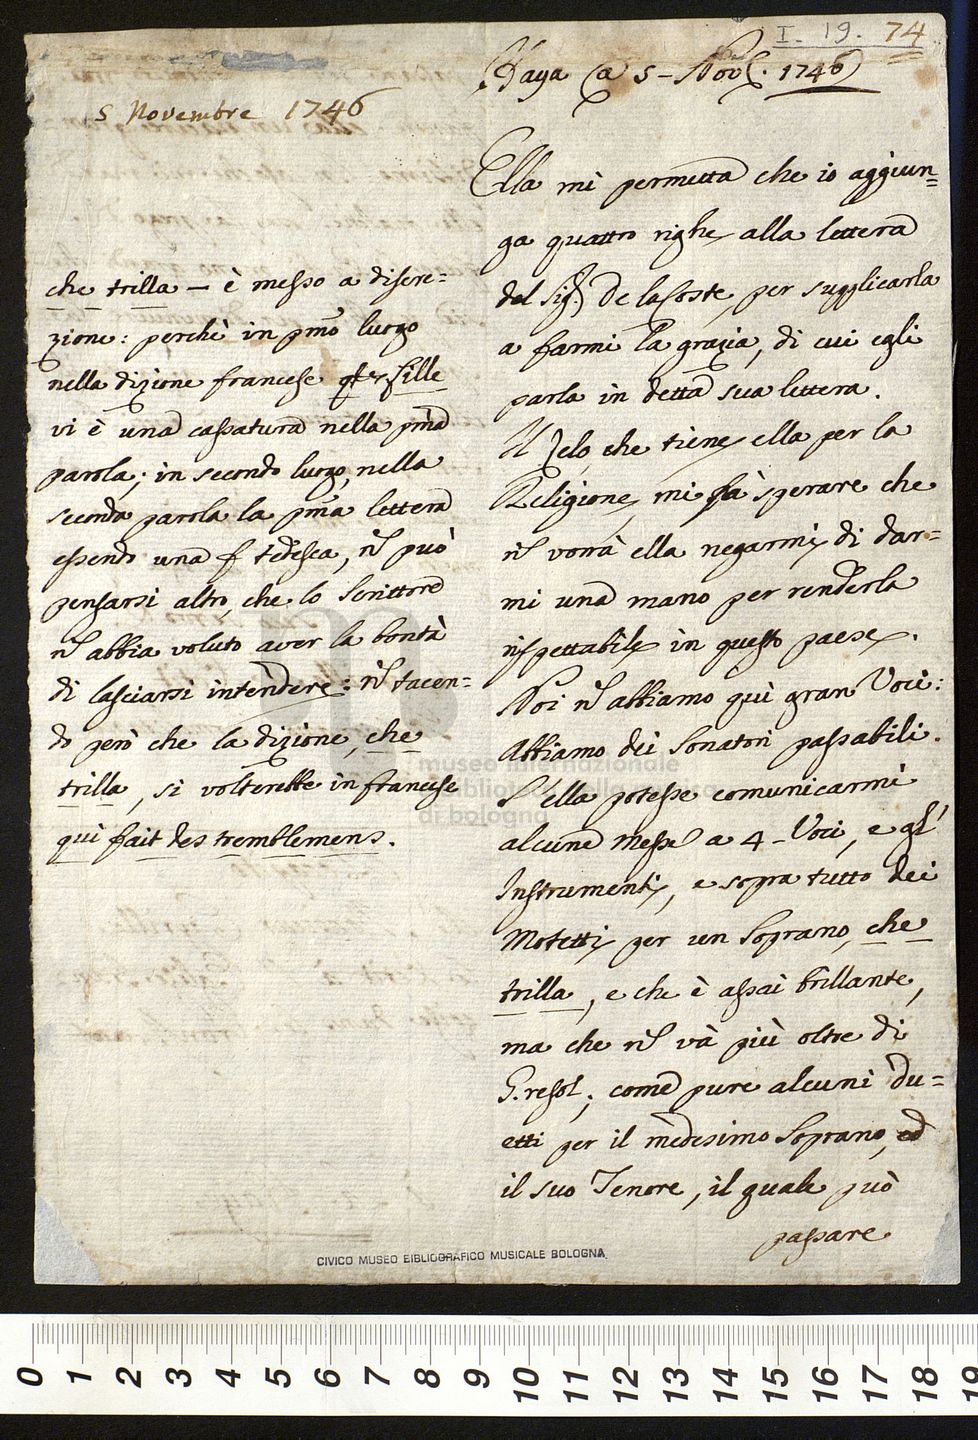 I. 19. 74
Haya a 5 - Nov. 1746
Ella mi permetta che io aggiun=
ga quattro righe alla lettera
del Sig.r De la Coste per supplicarla
a farmi la grazia, di cui egli
parla in detta sua lettera.
Il Zelo, che tiene ella per la
Religione, mi fà sperare che
ñ vorrà ella negarmi di dar=
mi una mano per renderla
rispettabile in questo paese.
Noi ñ abbiamo quì gran Voci:
Abbiamo dei Sonatori passabili.
S'ella potesse comunicarmi
alcune Messe a 4 - Voci, e gl'
Instrumenti, e sopra tutto dei
Motetti per un Soprano, che
trilla, e che è assai brillante,
ma che ñ và più oltre di
G.resol; come pure alcuni du=
etti per il medesimo Soprano, ed
il suo Tenore, il quale può
passare
5 Novembre 1746
che trilla — è messo a discre=
zione: perchè in pmo luogo
nella dizione francese fille
vi è una cassatura nella pma
parola; in secondo luogo, nella
seconda parola la pma lettera
essendo una f tedesca, ñ può
pensarsi altro, che lo Scrittore
ñ abbia voluto aver la bontà
di lasciarsi intendere: ñ tacen=
do però che la dizione, che
trilla, si volterebbe in francese
quì fait des tremblemens.
museo internazionale
biblioteca della musica
di bologna
CIVICO MUSEO BIBLIOGRAFICO MUSICALE BOLOGNA
0 1 2 3 4 5 6 7 8 9 10 11 12 13 14 15 16 17 18 19